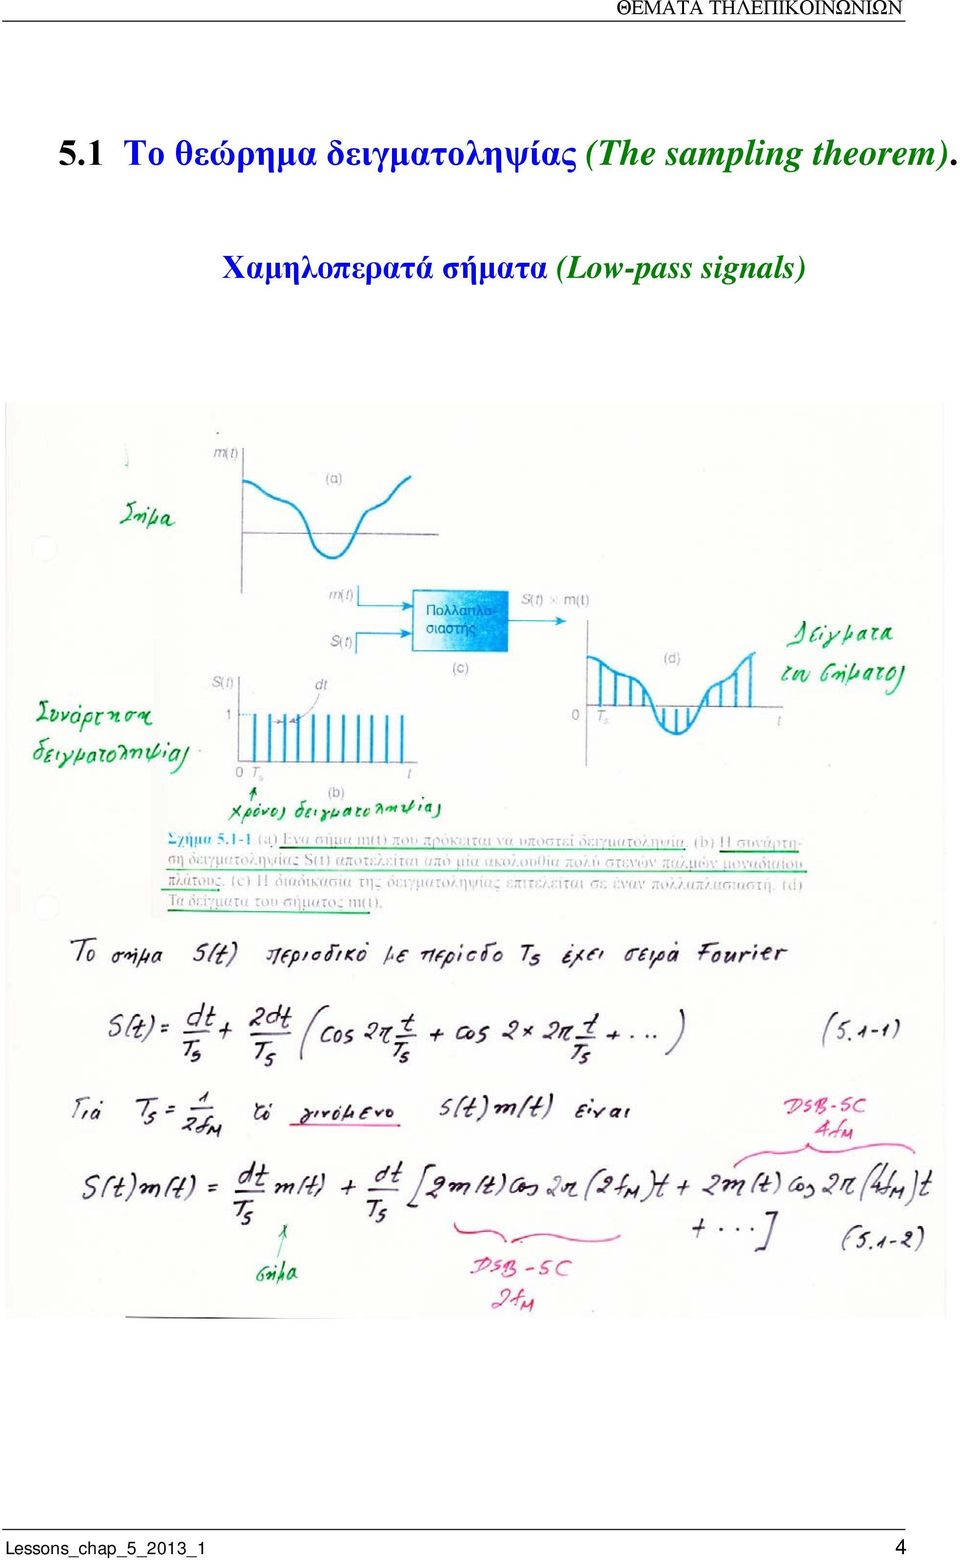 ΘΕΜΑΤΑ ΤΗΛΕΠΙΚΟΙΝΩΝΙΩΝ
5.1 Το θεώρημα δειγματοληψίας (The sampling theorem).
Χαμηλοπερατά σήματα (Low-pass signals)
m(t)
(a)
Σήμα
m(t)
S(t)
Πολλαπλα-
σιαστής
S(t) × m(t)
(c)
Δείγματα
του σήματος
(d)
0 Ts t
S(t)
dt
1
Συνάρτηση
δειγματοληψίας
0 Ts t
(b)
χρόνος δειγματοληψίας
Σχήμα 5.1-1 (a) Ενα σήμα m(t) που πρόκειται να υποστεί δειγματοληψία. (b) Η συνάρτη-
ση δειγματοληψίας S(t) αποτελείται από μία ακολουθία πολύ στενών παλμών μοναδιαίου
πλάτους. (c) Η διαδικασία της δειγματοληψίας επιτελείται σε έναν πολλαπλασιαστή. (d)
Τα δείγματα του σήματος m(t).
Το σήμα S(t) περιοδικό με περίοδο Ts έχει σειρά Fourier
S(t) = dt/Ts + 2dt/Ts (cos 2π t/Ts + cos 2 × 2π t/Ts + ...) (5.1-1)
Γιά Ts = 1/2fM τό γινόμενο S(t)m(t) είναι
DSB-SC
4fM
S(t)m(t) = dt/Ts m(t) + dt/Ts [2m(t)cos 2π(2fM)t + 2m(t)cos 2π(4fM)t
+ ...] (5.1-2)
σήμα
DSB-SC
2fM
Lessons_chap_5_2013_1 4